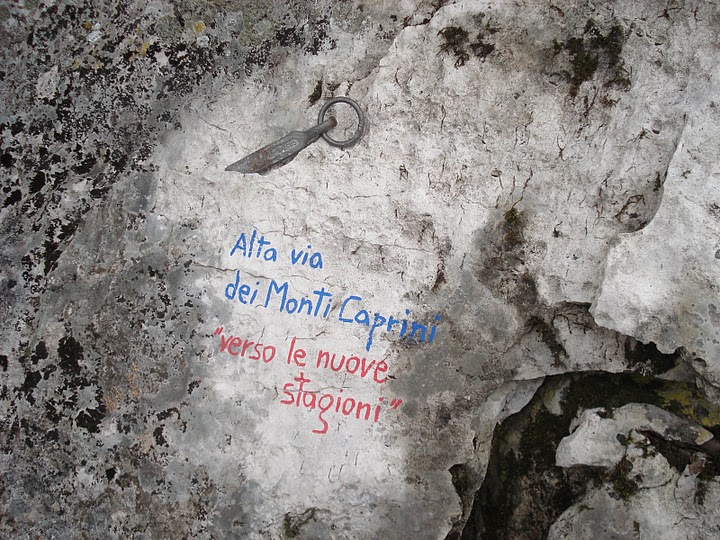 Alta via
dei Monti Caprini
"verso le nuove
stagioni"